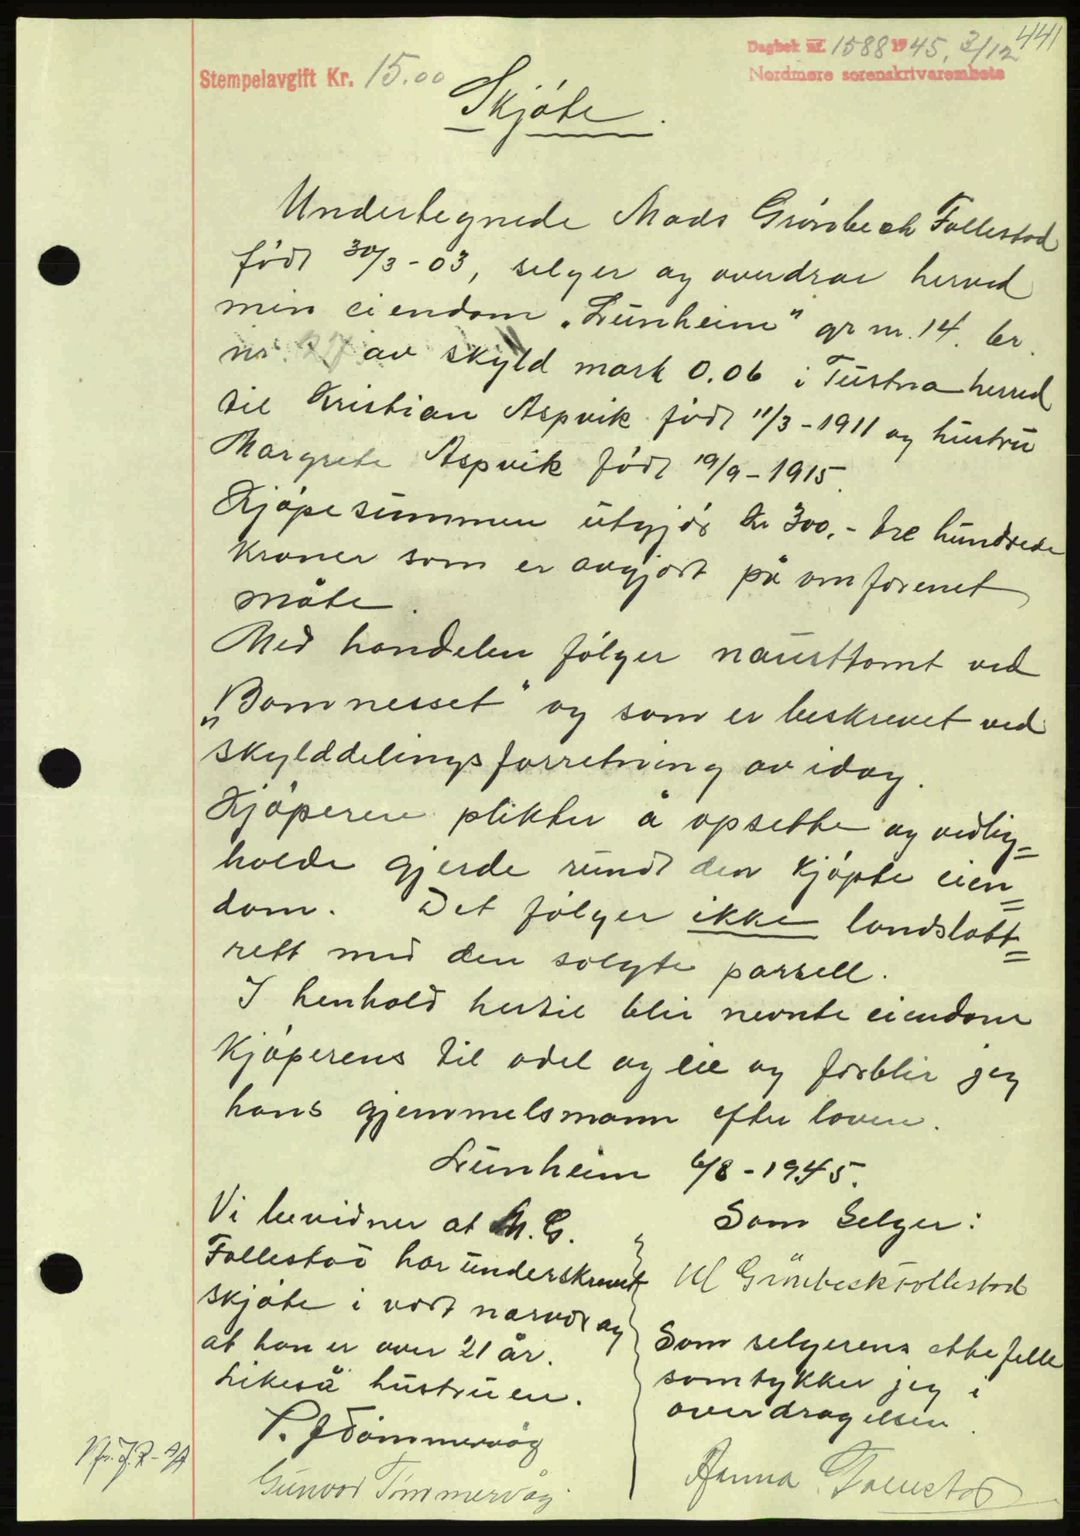 441
Dagbok nr. 1588 1945, 3/12
Nordmøre sorenskrivarembete
Stempelavgift Kr. 15.00
Skjøte.
Undertegnede Mads Grønbech Follestad
født 30/3-03, selger og overdrar herved
min eiendom „Lünheim“ gr nr. 14. br.
nr. 27 av skyld mark 0.06 i Tustna herred
til Kristian Aspvik født 11/3-1911 og hustru
Margrete Aspvik født 19/9-1915.
Kjøpesummen utgjør Kr 300,- tre hundrede
kroner som er avgjort på omforenet
måte.
Med handelen følger nausttomt ved
„Bomnesset“ og som er beskrevet ved
skylddelingsforretning av idag.
Kjøperen plikter å opsette og vedlig=
holde gjerde rundt den kjøpte eien=
dom. Det følger ikke landslott=
rett med den solgte parsell.
I henhold hertil blir nevnte eiendom
Kjøperens til odel og eie og forblir jeg
hans hjemmelsmann efter loven.
Lünheim 6/8-1945.
Vi bevidner at M. G.
Follestad har underskrevet
skjøte i vort nærvær og
at han er over 21 år.
Likeså hustruen.
P. J Tømmervåg
Gunvor Tømmervåg
Som Selger:
M Grönbeck Follestad
Som selgerens ektefelle
samtykker jeg i
overdragelsen.
Anna Follestad